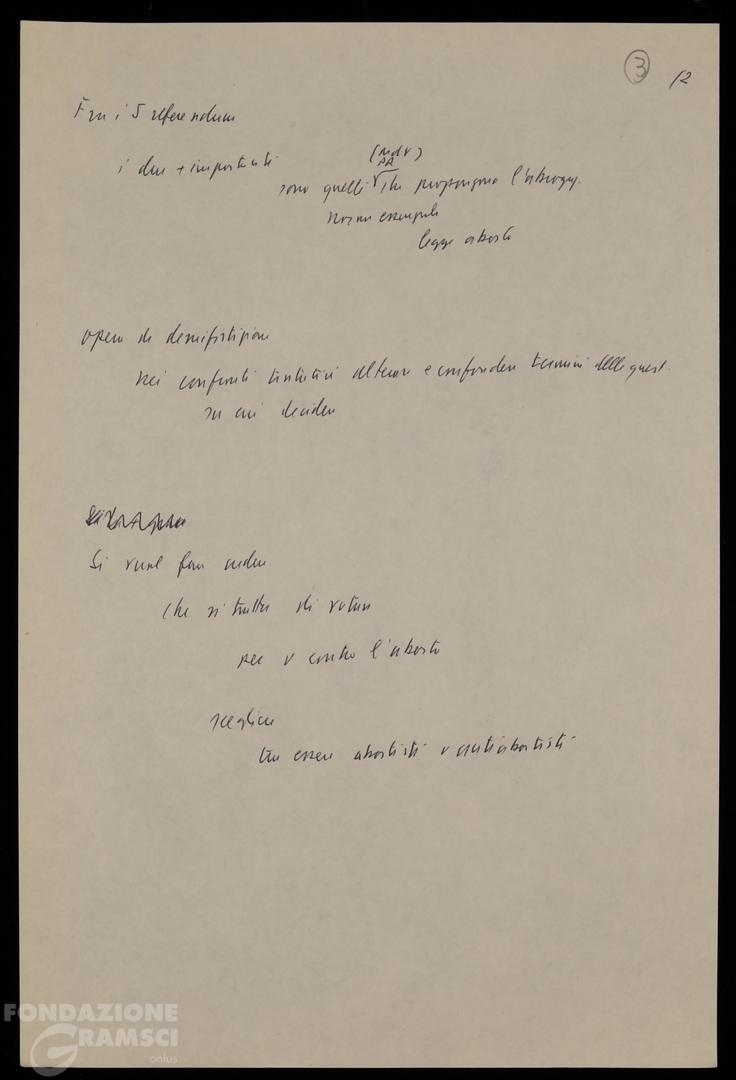 3
12
Fra i 5 referendum
i due + importanti
(MdV)
PR
sono quelli che propongono l'abrogaz.
legge aborto
opera di demistificazione
nei confronti tentativi alterare e confondere termini delle quest.
su cui decidere
Si vuol far credere
che si tratta di votare
per o contro l'aborto
scegliere
tra essere abortisti o antiabortisti
FONDAZIONE
GRAMSCI
onlus